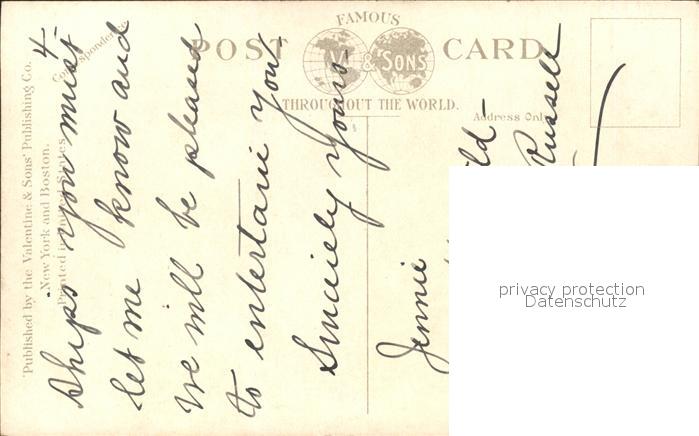 FAMOUS
POST CARD
V & SONS
THROUGHOUT THE WORLD.
Correspondence
Address Only
Published by the Valentine & Sons' Publishing Co.
New York and Boston.
Printed in United States.
4-
Ships you must
let me know and
we will be pleased
to entertain you.
Sincerely yours-
Jennie
Russell
privacy protection
Datenschutz